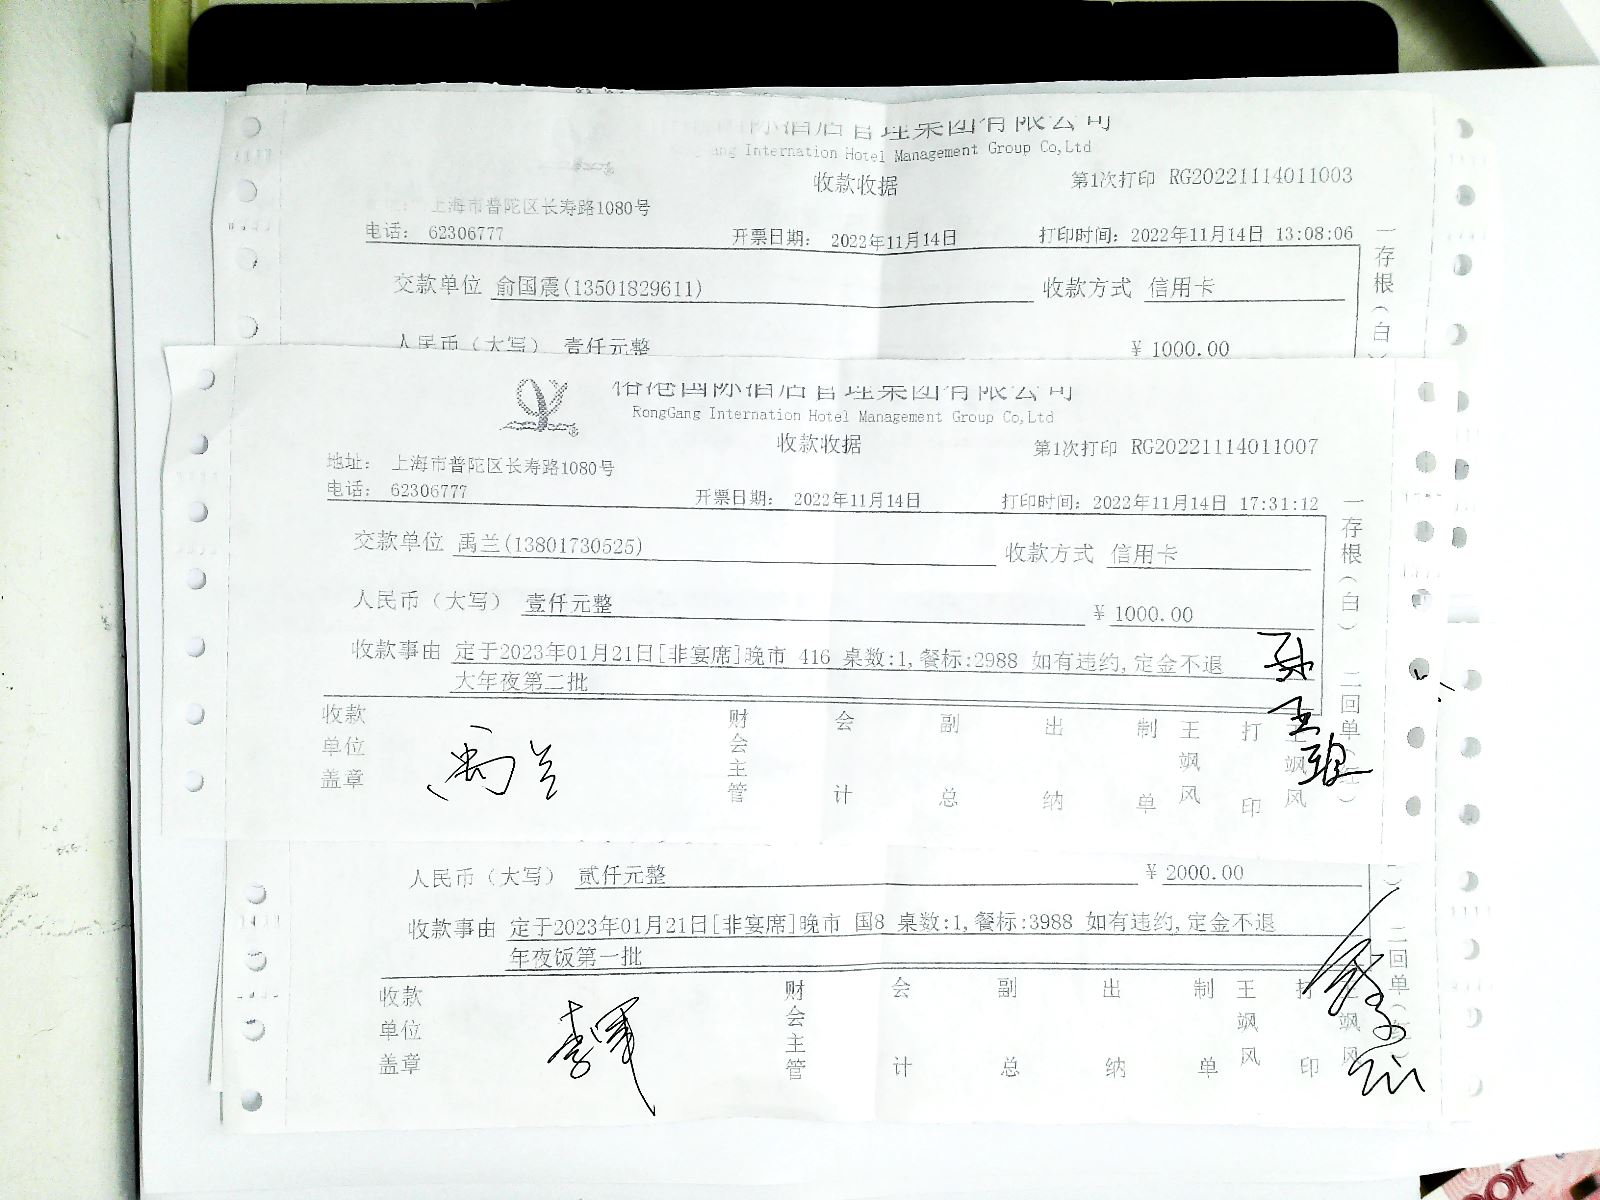 国际酒店管理集团有限公司
ang Internation Hotel Management Group Co,Ltd
收款收据
第1次打印 RG20221114011003
上海市普陀区长寿路1080号
电话: 62306777 开票日期: 2022年11月14日 打印时间: 2022年11月14日 13:08:06
交款单位 俞国震(13501829611) 收款方式 信用卡
人民币（大写） 壹仟元整 ¥ 1000.00
一存根（白）
榕港国际酒店管理集团有限公司
RongGang Internation Hotel Management Group Co,Ltd
收款收据
第1次打印 RG20221114011007
地址: 上海市普陀区长寿路1080号
电话: 62306777 开票日期: 2022年11月14日 打印时间: 2022年11月14日 17:31:12
交款单位 禹兰(13801730525) 收款方式 信用卡
人民币（大写） 壹仟元整 ¥ 1000.00
收款事由 定于2023年01月21日[非宴席]晚市 416 桌数:1,餐标:2988 如有违约,定金不退
大年夜第二批
收款单位盖章 禹兰 财会主管 会计 副总 出纳 制单 王飒风 打印 王飒风
一存根（白） 二回单
人民币（大写） 贰仟元整 ¥ 2000.00
收款事由 定于2023年01月21日[非宴席]晚市 国8 桌数:1,餐标:3988 如有违约,定金不退
年夜饭第一批
收款单位盖章 财会主管 会计 副总 出纳 制单 王飒风 打印 王飒风
二回单
100